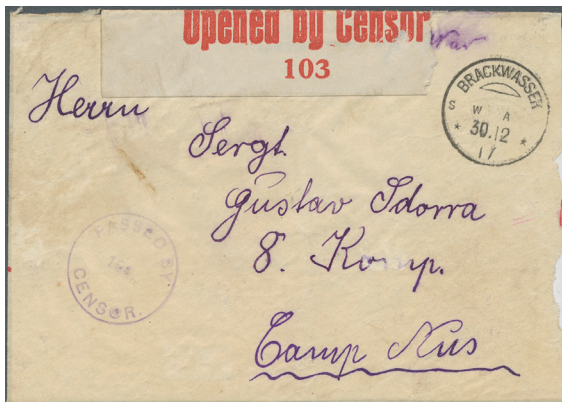 Opened by Censor
103
War
BRACKWASSER
S W A
* 30.12 *
17
Herrn
Sergt.
Gustav Idorra
8. Komp.
Camp Nus
PASSED BY
CENSOR.